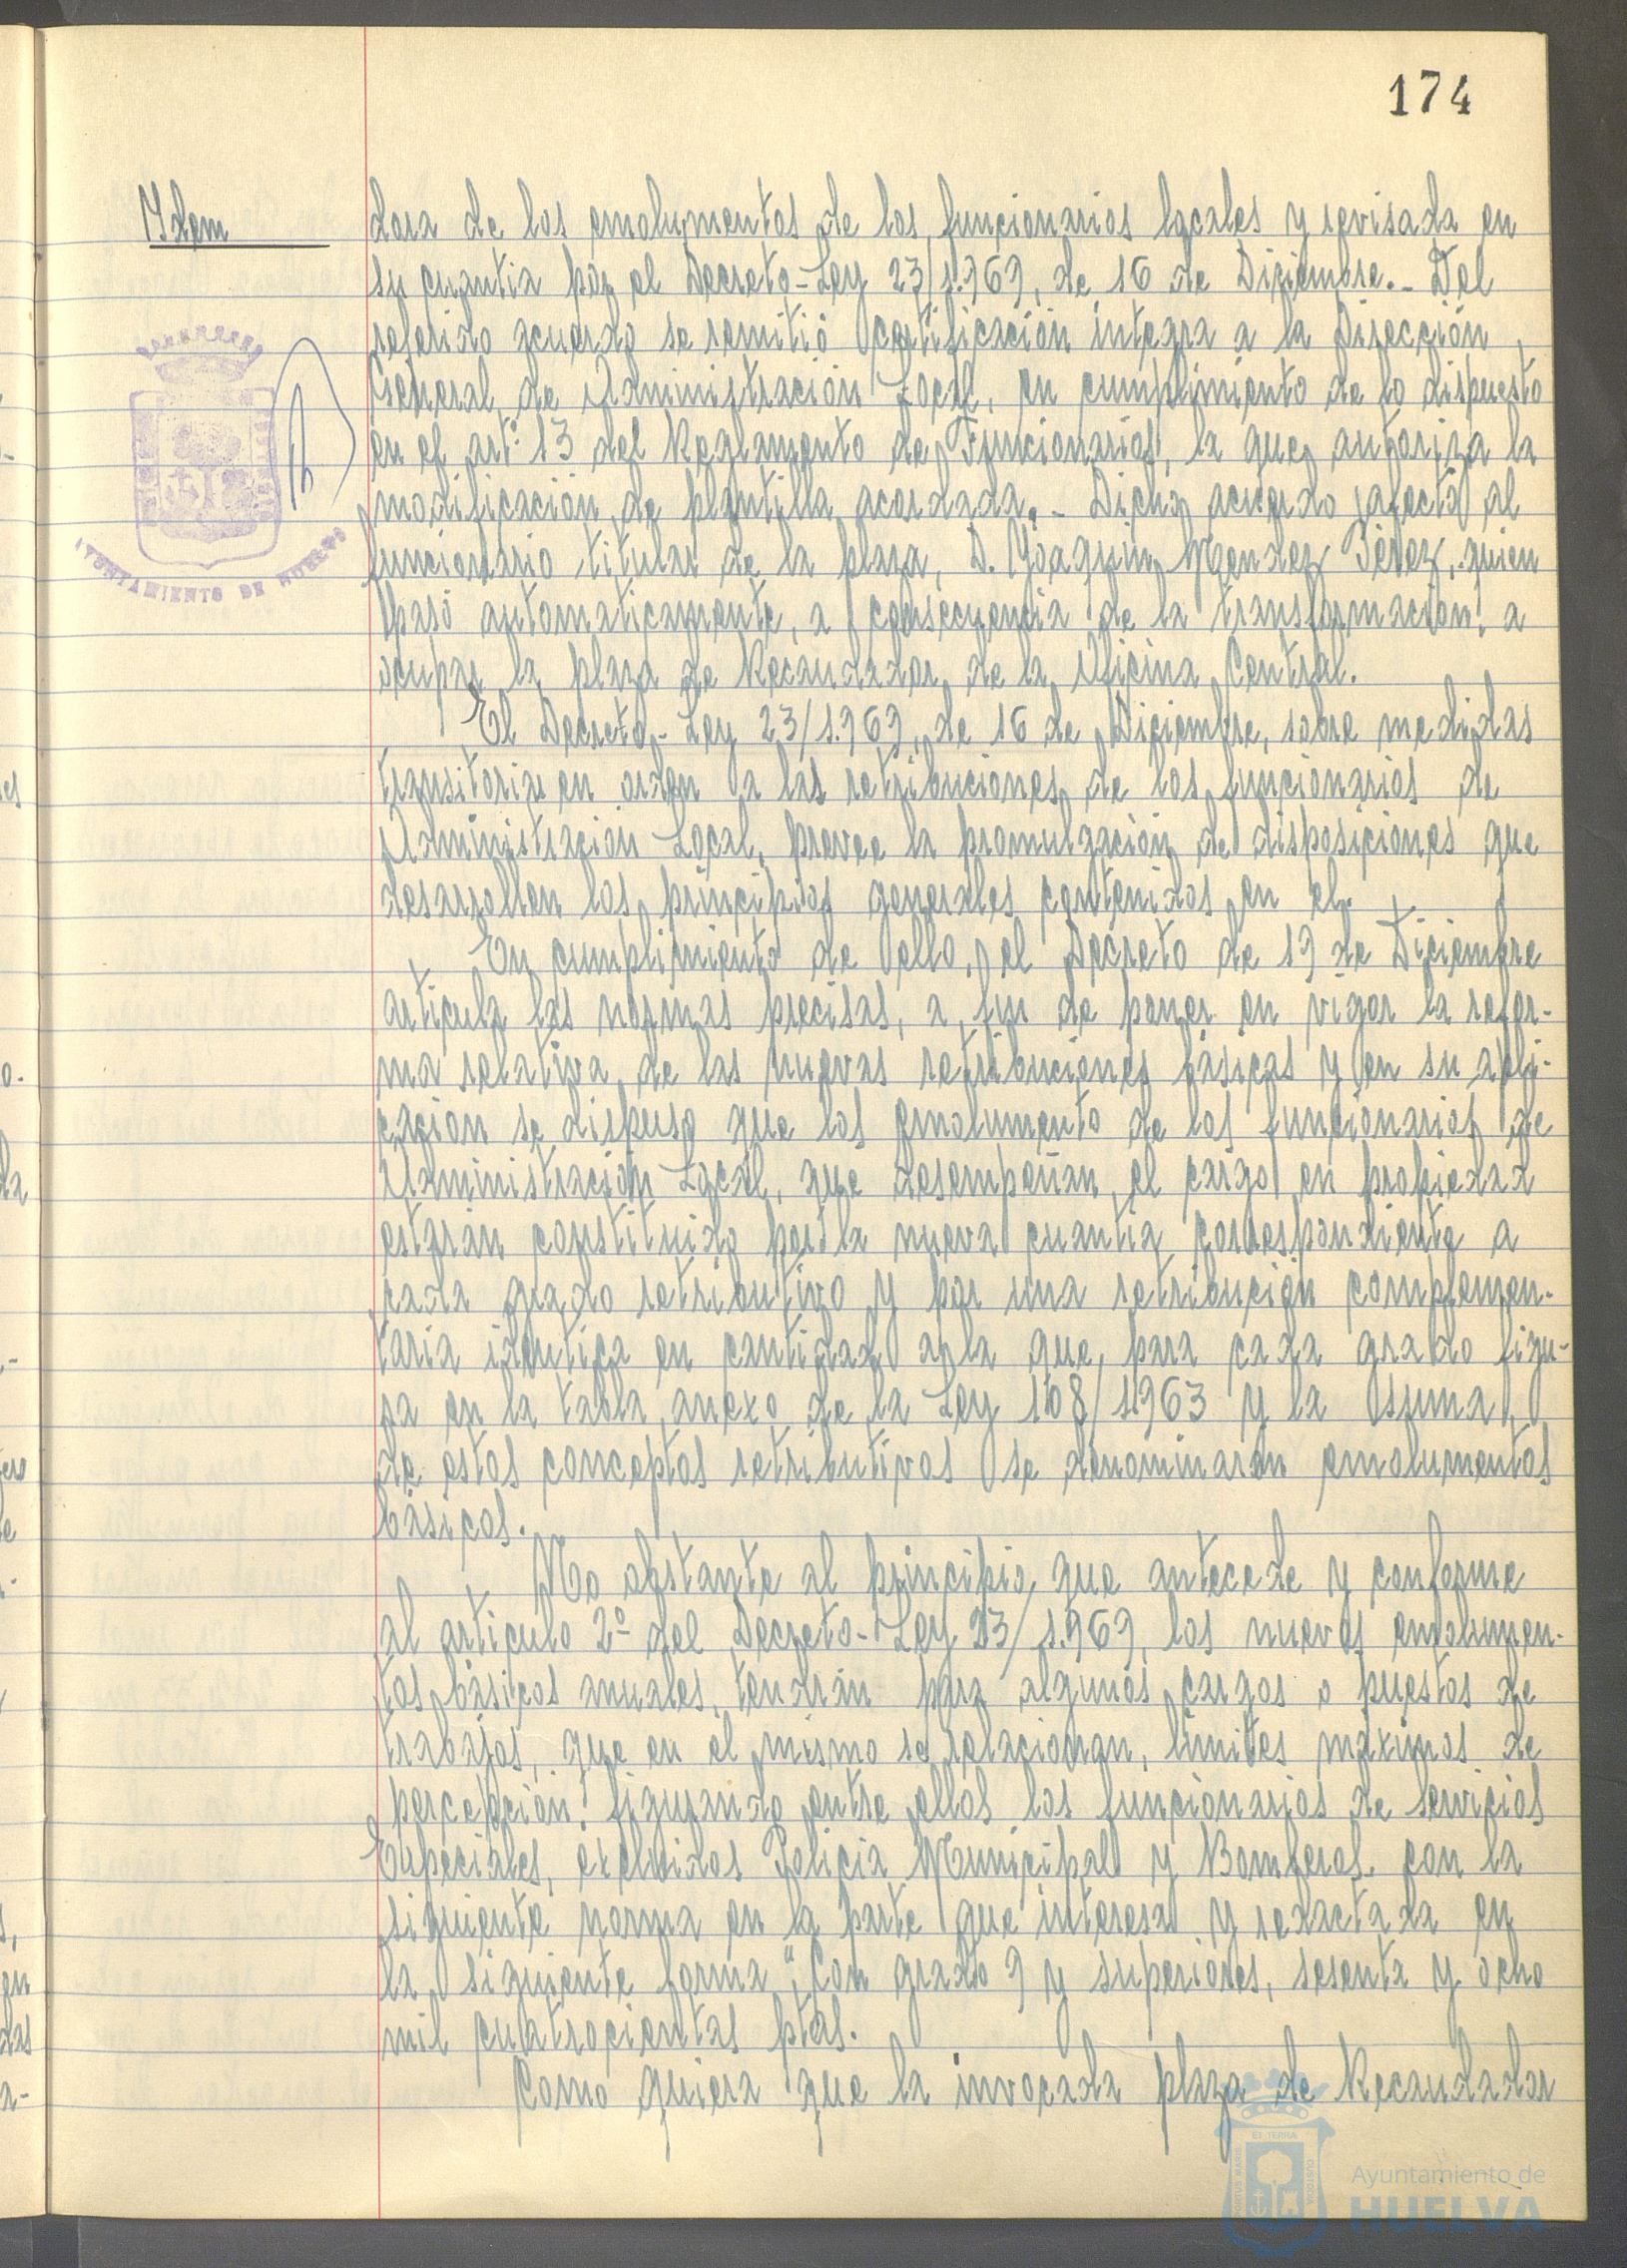 174
Idem
dora de los emolumentos de los funcionarios locales y revisada en
su cuantia por el Decreto-Ley 23/1.969, de 16 de Diciembre.- Del
referido acuerdo se remitió certificación integra a la Dirección
General de Administración Local, en cumplimiento de lo dispuesto
en el artº 13 del Reglamento de Funcionarios, la que autoriza la
modificación de plantilla acordada.- Dicho acuerdo afecta al
funcionario titular de la plaza, D. Joaquin Mendez Pérez, quien
pasó automaticamente, a consecuencia de la transformación, a
ocupar la plaza de Recaudador de la Oficina Central.
El Decreto-Ley 23/1.969, de 16 de Diciembre, sobre medidas
transitorias en orden a las retribuciones de los funcionarios de
Administración Local, prevee la promulgación de disposiciones que
desarrollen los principios generales contenidos en el.
En cumplimiento de ello, el Decreto de 19 de Diciembre
articula las normas precisas, a fin de poner en vigor la refor-
ma relativa de las nuevas retribuciones básicas y en su apli-
cación se dispuso que los emolumento de los funcionarios de
Administración Local, que desempeñan el cargo en propiedad
estarán constituido por la nueva cuantia correspondiente a
cada grado retributivo y por una retribución complemen-
taria identica en cantidad a la que, para cada grado figu-
ra en la tabla anexo de la Ley 108/1963 y la suma
de estos conceptos retributivos se denominarán emolumentos
básicos.
No obstante al principio que antecede y conforme
al articulo 2º del Decreto-Ley 23/1.969, los nuevos emolumen-
tos básicos anuales, tendrán para algunos cargos o puestos de
trabajos, que en él mismo se relacionan, limites máximos de
percepción, figurando entre ellos los funcionarios de Servicios
Especiales, excluidos Policia Municipal y Bomberos. con la
siguiente norma en la parte que interesa y redactada en
la siguiente forma ", Con grado 9 y superiores, sesenta y ocho
mil cuatrocientas ptas.
Como quiera que la invocada plaza de Recaudador
AYUNTAMIENTO DE HUELVA
Ayuntamiento de
HUELVA